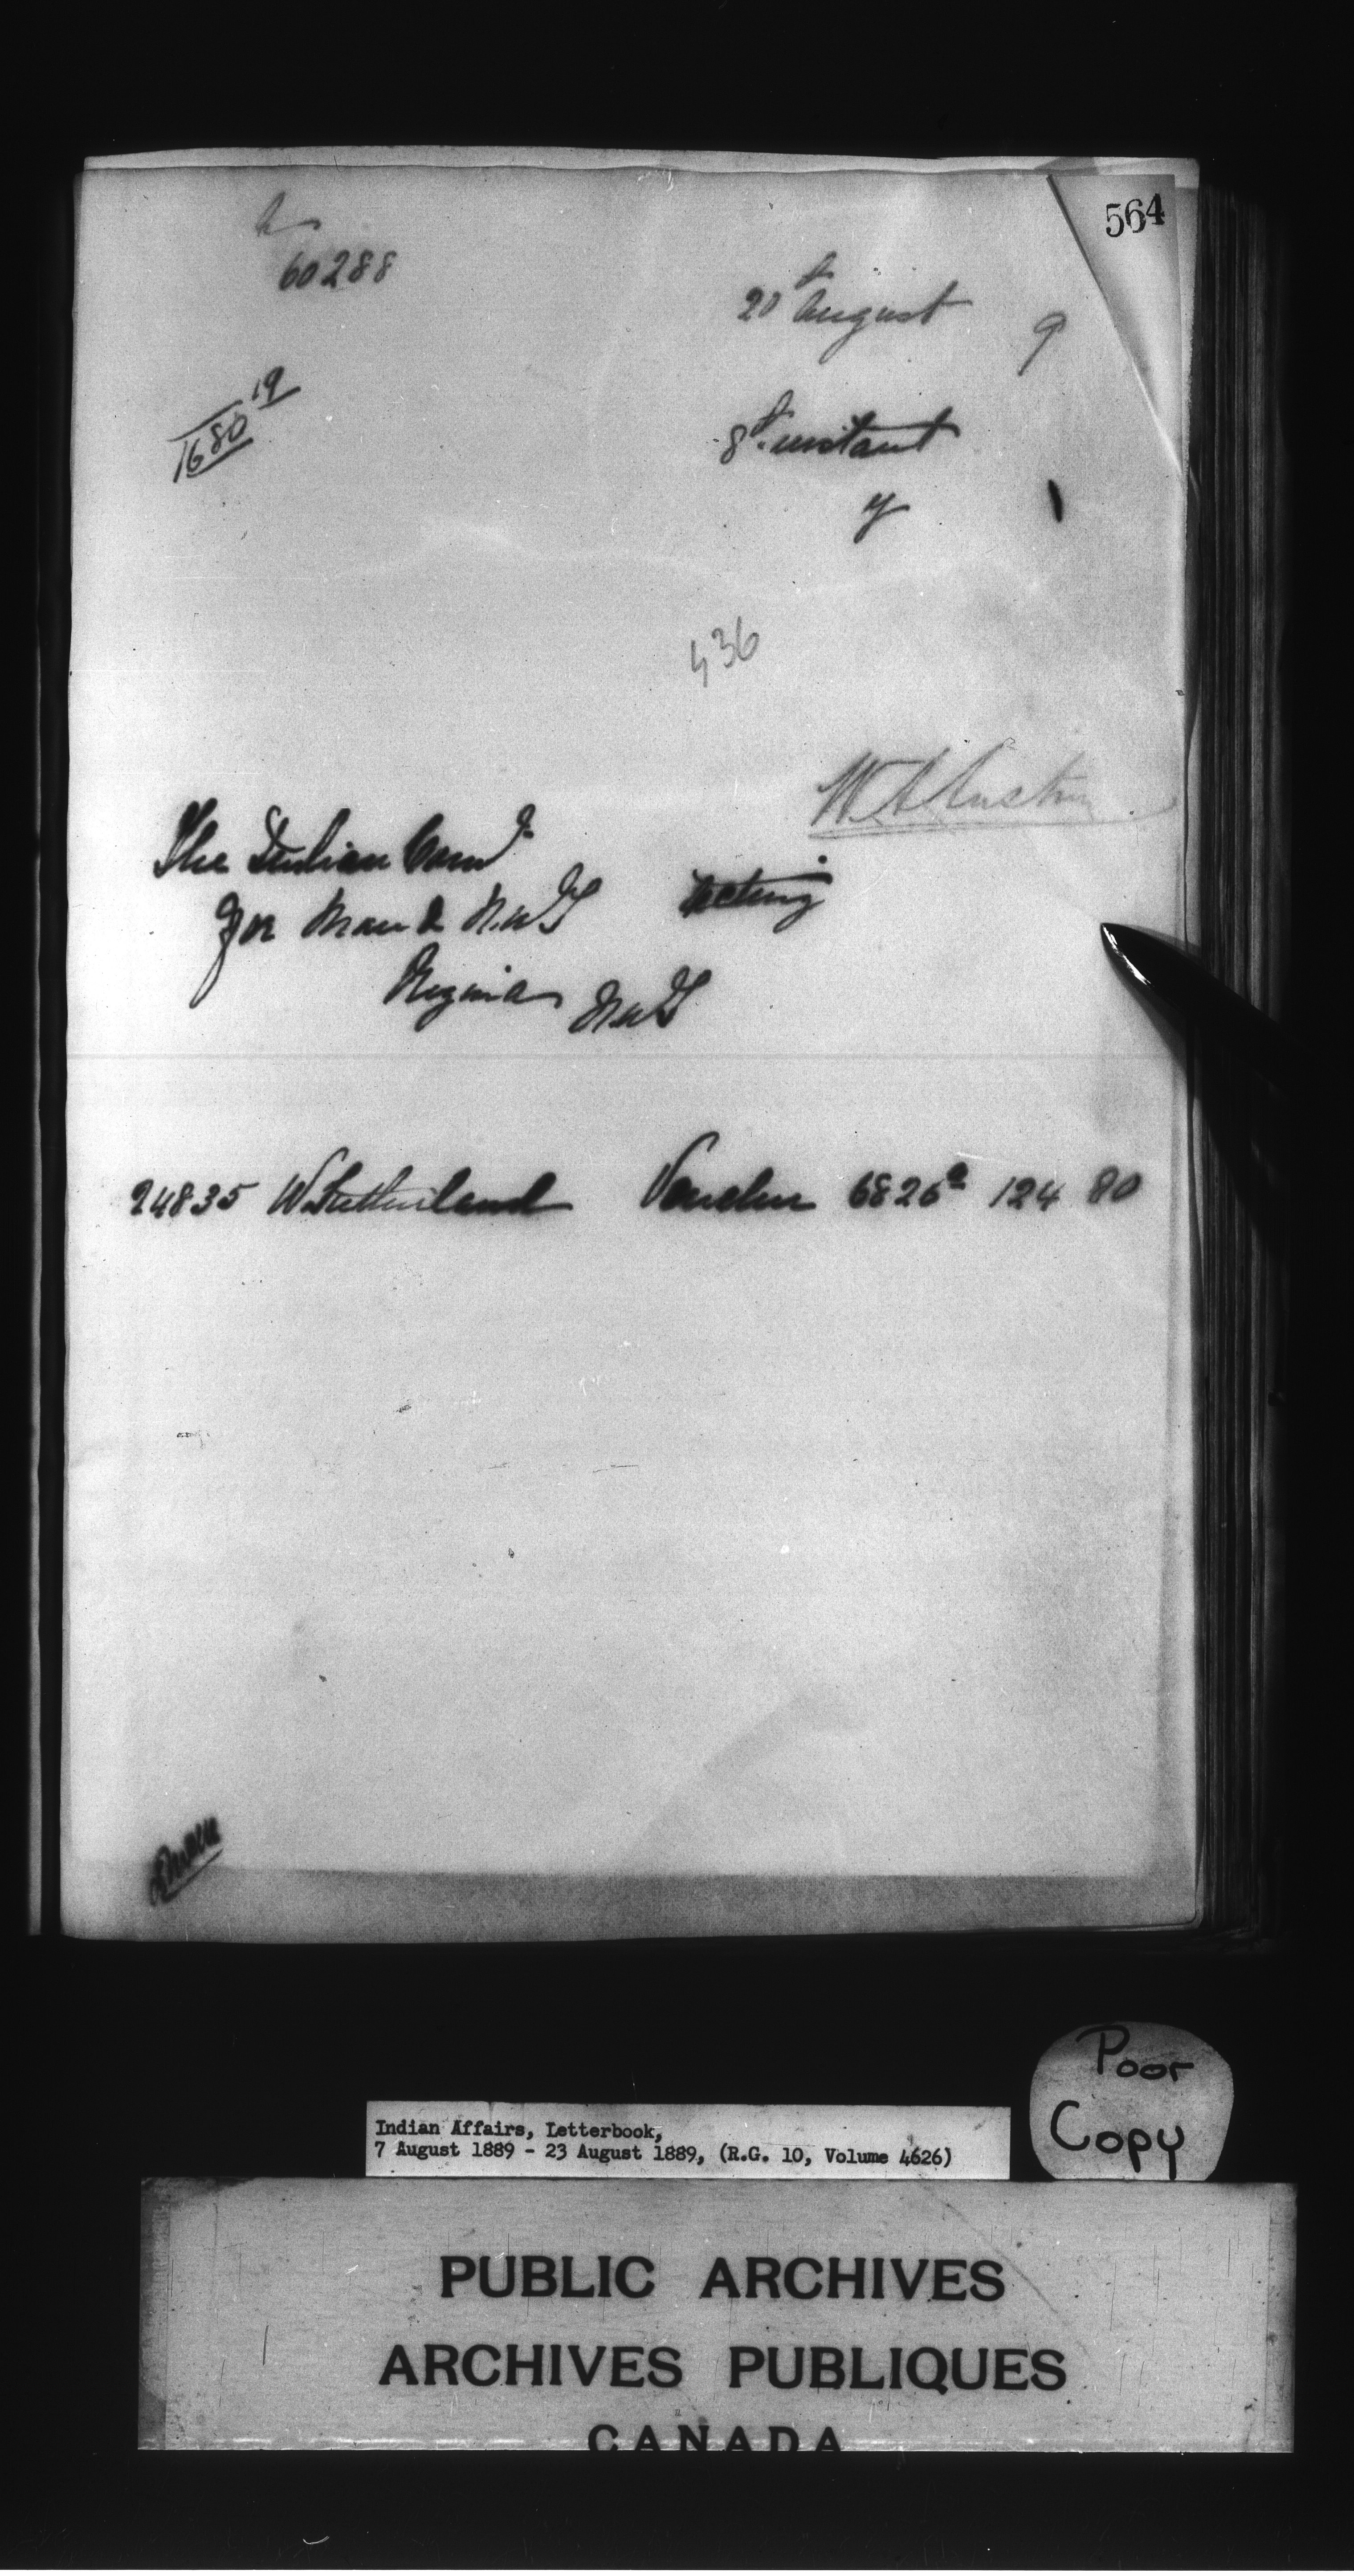 564
60288
20th August 9
1680 19
8th instant
y 1
436
W A Austin
The Indian Comr
for Man & N.W.T
acting
Regina N.W.T
24835 W. Sutherland Voucher 6826a 124 80
Poor
Copy
Indian Affairs, Letterbook,
7 August 1889 - 23 August 1889, (R.G. 10, Volume 4626)
PUBLIC ARCHIVES
ARCHIVES PUBLIQUES
CANADA